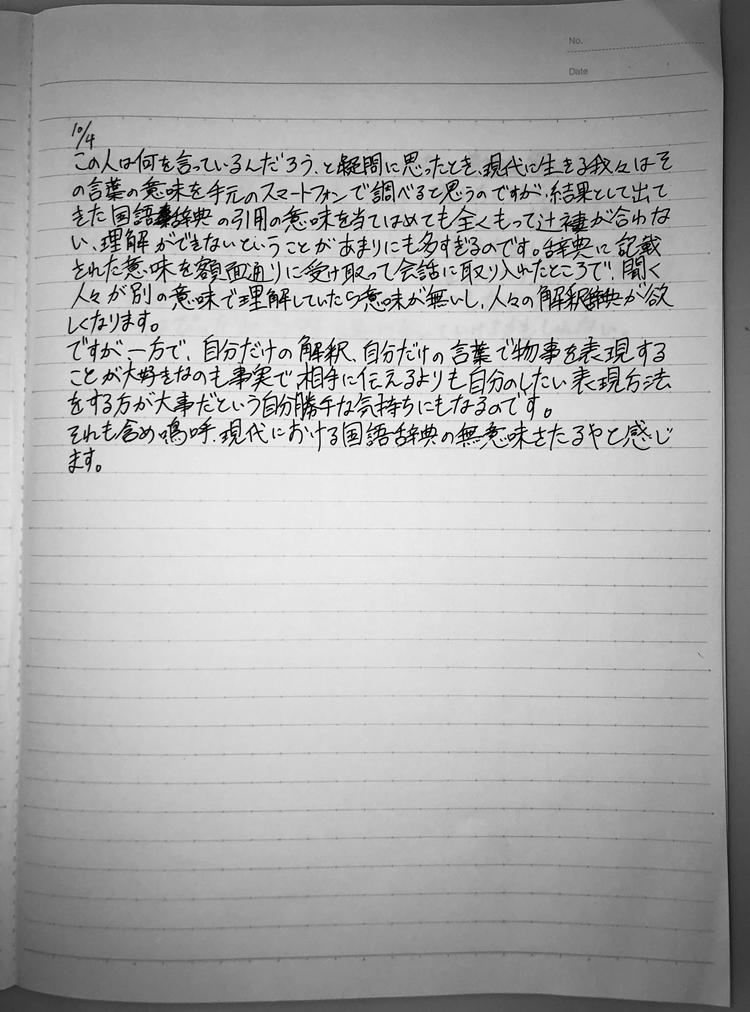 No.
Date
10/4
この人は何を言っているんだろう、と疑問に思ったとき、現代に生きる我々はそ
の言葉の意味を手元のスマートフォンで調べると思うのですが、結果として出て
きた国語辞典の引用の意味を当てはめても全くもって辻褄が合わな
い、理解ができないということがあまりにも多すぎるのです。辞典に記載
された意味を額面通りに受け取って会話に取り入れたところで、聞く
人々が別の意味で理解していたら意味が無いし、人々の解釈辞典が欲
しくなります。
ですが、一方で、自分だけの解釈、自分だけの言葉で物事を表現する
ことが大好きなのも事実で、相手に伝えるよりも自分のしたい表現方法
をする方が大事だという自分勝手な気持ちにもなるのです。
それも含め嗚呼、現代における国語辞典の無意味さたるやと感じ
ます。